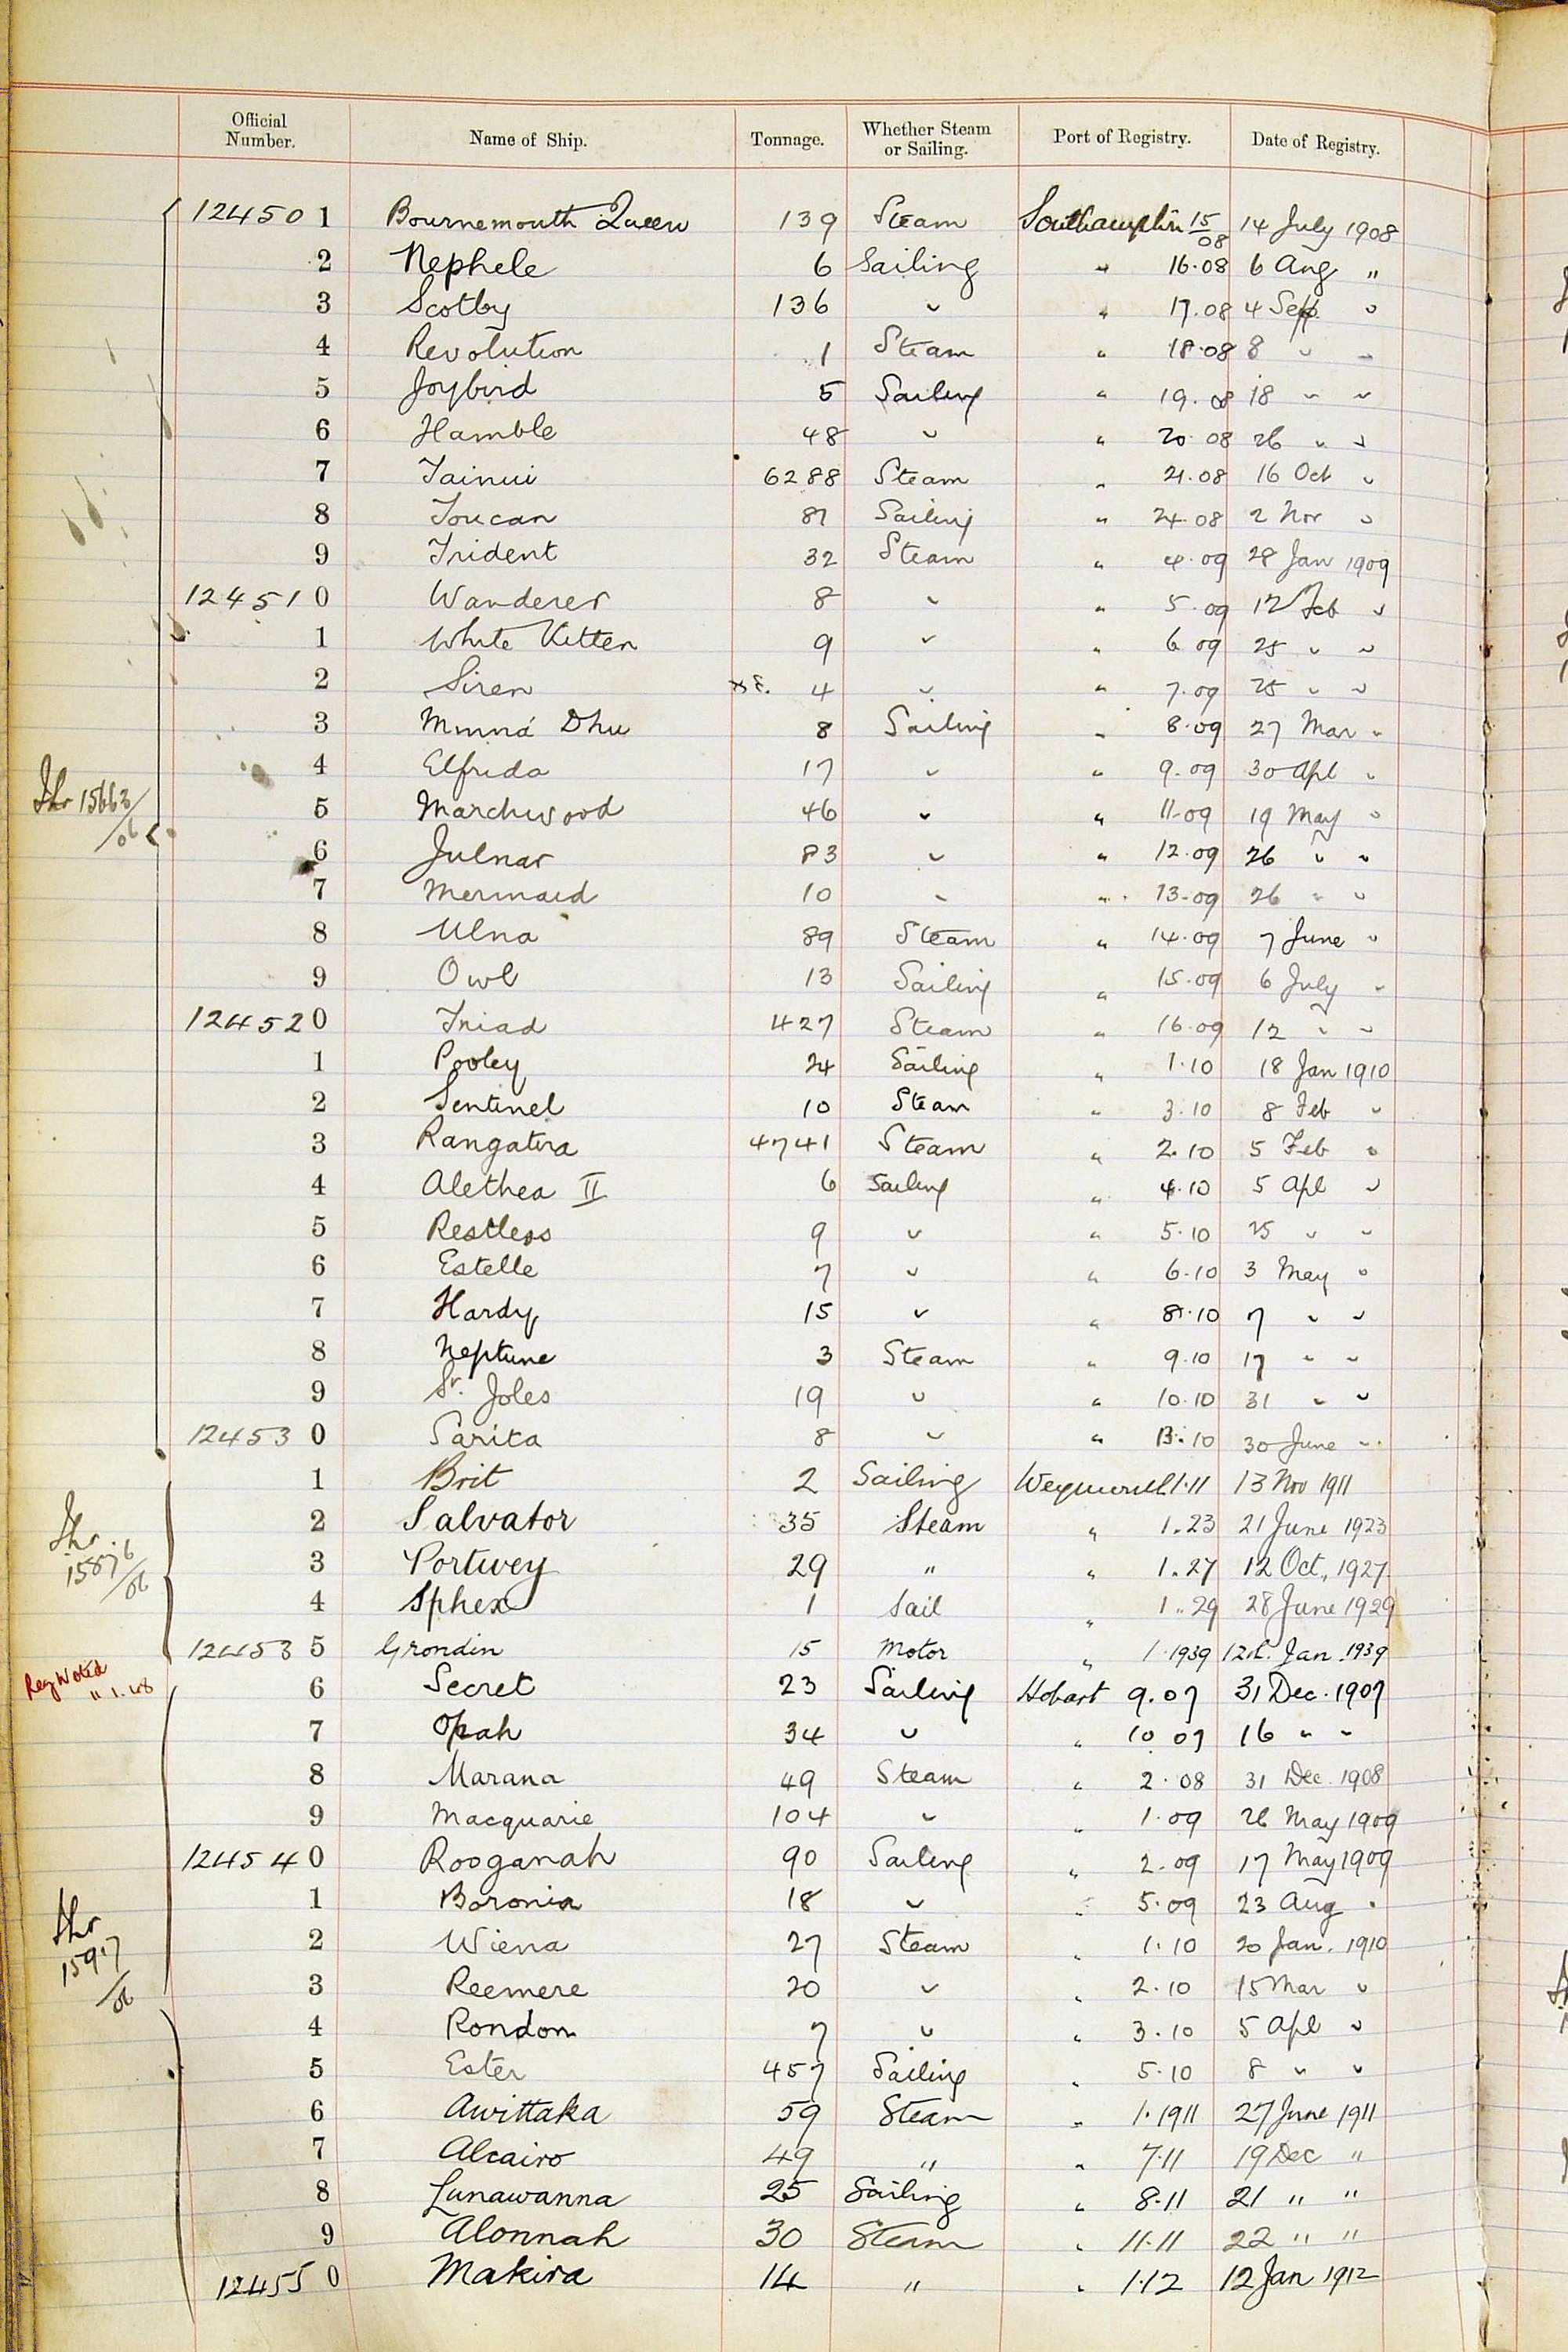 Official Number. Name of Ship. Tonnage. Whether Steam or Sailing. Port of Registry. Date of Registry.
124501 Bournemouth Queen 139 Steam Southampton 15/08 14 July 1908
2 Nephele 6 Sailing " 16.08 6 Aug "
3 Scotby 136 " " 17.08 4 Sept "
4 Revolution 1 Steam " 18.08 8 " "
5 Joybird 5 Sailing " 19.08 18 " "
6 Hamble 48 " " 20.08 26 " "
7 Tainui 6288 Steam " 21.08 16 Oct "
8 Toucan 81 Sailing " 24.08 2 Nov "
9 Trident 32 Steam " 4.09 28 Jan 1909
124510 Wanderer 8 " " 5.09 12 Feb "
1 White Kitten 9 " " 6 09 25 " "
2 Siren 4 " " 7.09 25 " "
3 Minna Dhu 8 Sailing " 8.09 27 Mar "
4 Elfrida 17 " " 9.09 30 Apl "
Thr 15663/06
5 Marchwood 46 " " 11.09 19 May "
6 Julnar 83 " " 12.09 26 " "
7 Mermaid 10 " " 13.09 26 " "
8 Ulna 89 Steam " 14.09 7 June "
9 Owl 13 Sailing " 15.09 6 July "
124520 Triad 427 Steam " 16.09 12 " "
1 Pooley 24 Sailing " 1.10 18 Jan 1910
2 Sentinel 10 Steam " 3.10 8 Feb "
3 Rangatira 4741 Steam " 2.10 5 Feb "
4 Alethea II 6 Sailing " 4.10 5 Apl "
5 Restless 9 " " 5.10 25 " "
6 Estelle 7 " " 6.10 3 May "
7 Hardy 15 " " 8.10 7 " "
8 Neptune 3 Steam " 9.10 17 " "
9 Sr. Joles 19 " " 10.10 31 " "
124530 Sarita 8 " " 13.10 30 June "
1 Brit 2 Sailing Weymouth 1.11 13 Nov 1911
2 Salvator 35 Steam " 1.23 21 June 1923
Thr 15876/06
3 Portwey 29 " " 1.27 12 Oct, 1927
4 Sphex 1 Sail " 1.29 28 June 1929
124535 Grondin 15 Motor " 1.1939 12th. Jan. 1939
Reg Noted 11.1.48
6 Secret 23 Sailing Hobart 9.07 31 Dec. 1907
7 Opah 34 " " 10 07 16 " "
8 Marana 49 Steam " 2.08 31 Dec. 1908
9 Macquarie 104 " " 1.09 26 May 1909
124540 Rooganah 90 Sailing " 2.09 17 May 1909
1 Boronia 18 " " 5.09 23 Aug "
Thr 15917/06
2 Wiena 27 Steam " 1.10 20 Jan. 1910
3 Reemere 20 " " 2.10 15 Mar "
4 Rondon 7 " " 3.10 5 Apl "
5 Ester 457 Sailing " 5.10 8 " "
6 Awittaka 59 Steam " 1.1911 27 June 1911
7 Alcairo 49 " " 7.11 19 Dec "
8 Lunawanna 25 Sailing " 8.11 21 " "
9 Alonnah 30 Steam " 11.11 22 " "
124550 Makira 14 " " 1.12 12 Jan 1912